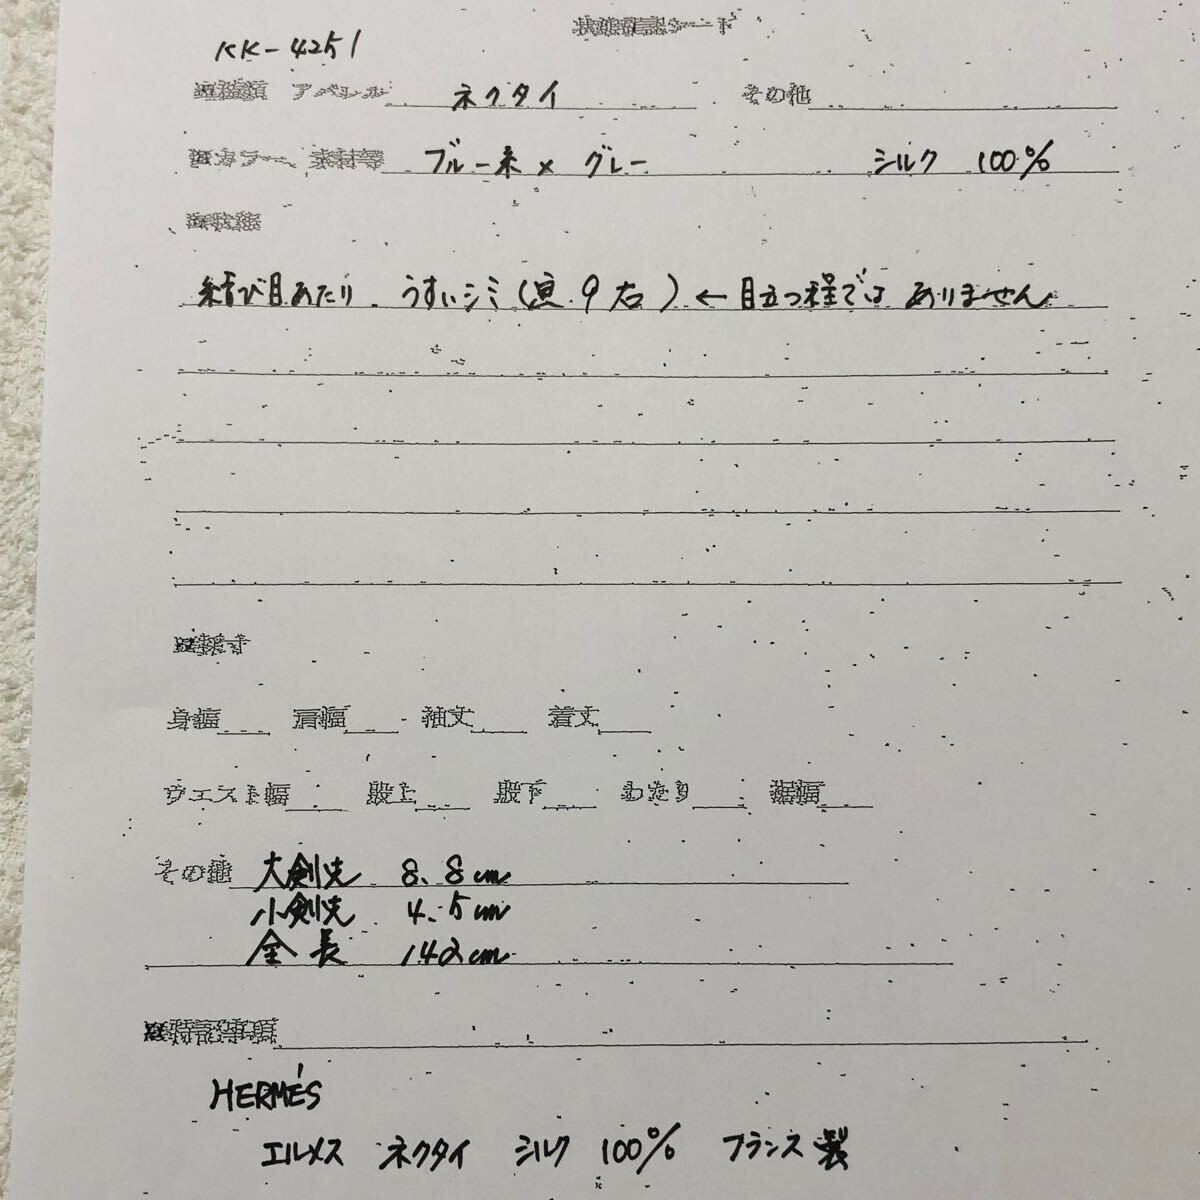 状態確認シート
KK-4251
アパレル ネクタイ その他
カラー、素材等 ブルー系 × グレー シルク 100%
結び目あたり うすいシミ ← 目立つ程では ありません
採寸
身幅 肩幅 袖丈 着丈
ウエスト幅 股上 股下 わたり 裾幅
その他 大剣先 8.8cm
小剣先 4.5cm
全長 142cm
特記事項
HERMÉS
エルメス ネクタイ シルク 100% フランス製